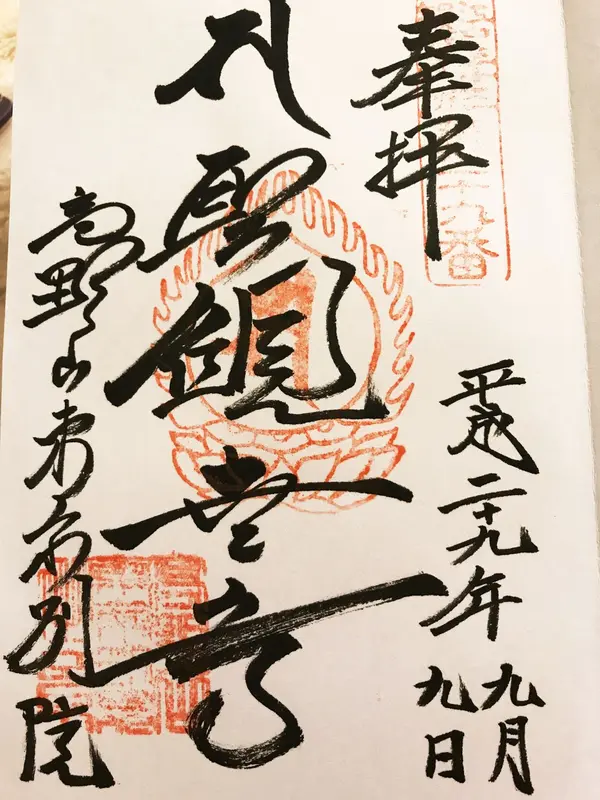 奉拝
二十九番
平成二十九年
九月
九日
聖観世音
高野山東京別院